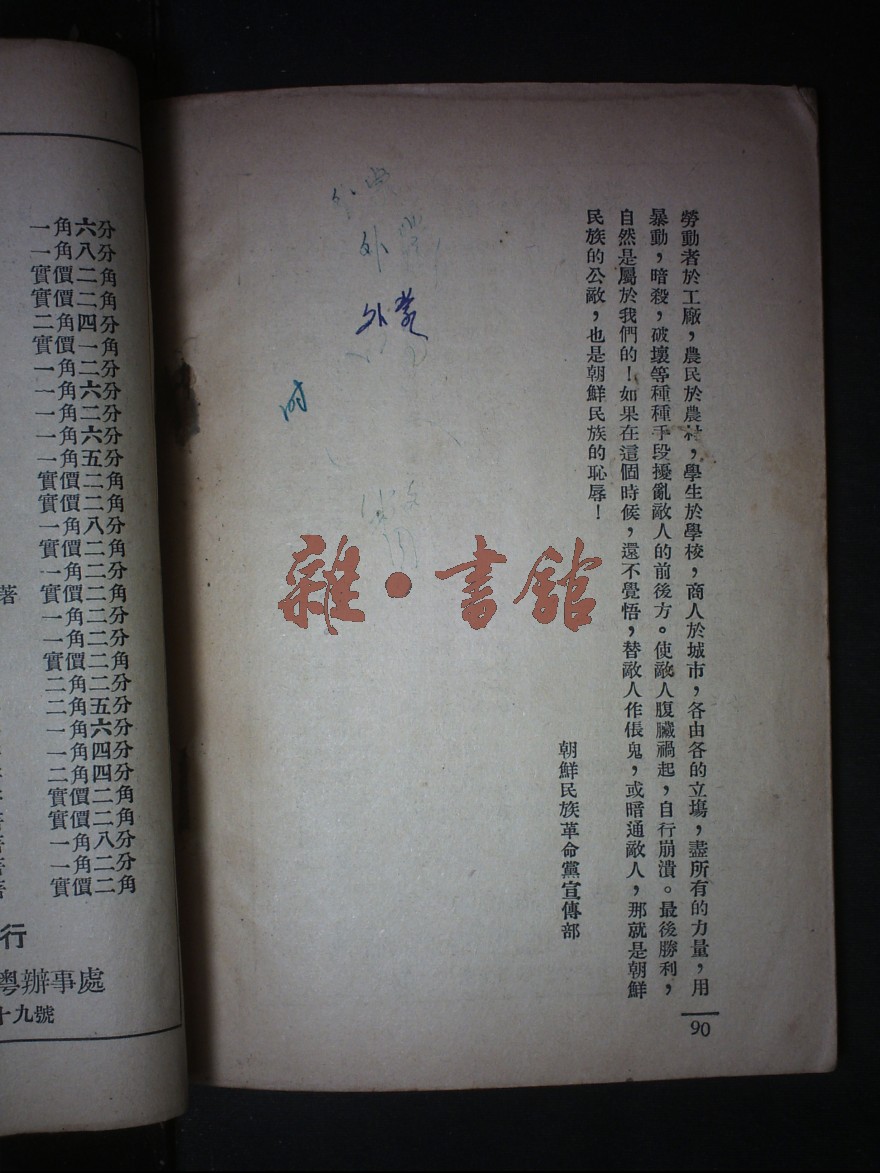 勞動者於工廠，農民於農村，學生於學校，商人於城市，各由各的立塲，盡所有的力量，用
暴動，暗殺，破壞等種種手段擾亂敵人的前後方。使敵人腹臟禍起，自行崩潰。最後勝利，
自然是屬於我們的！如果在這個時候，還不覺悟，替敵人作倀鬼，或暗通敵人，那就是朝鮮
民族的公敵，也是朝鮮民族的恥辱！
朝鮮民族革命黨宣傳部
90
外
外蒙
雜·書館
一角六分
一角八分
實價二角
實價二角
二角四分
實價一角
一角二分
一角六分
一角二分
一角六分
一角五分
實價二角
實價二角
一角八分
實價二角
一角二分
著 實價二角
一角二分
一角二分
實價二角
二角二分
二角五分
一角六分
一角四分
二角四分
實價二角
實價二角
一角八分
一角二分
實價二角
行
粵辦事處
十九號